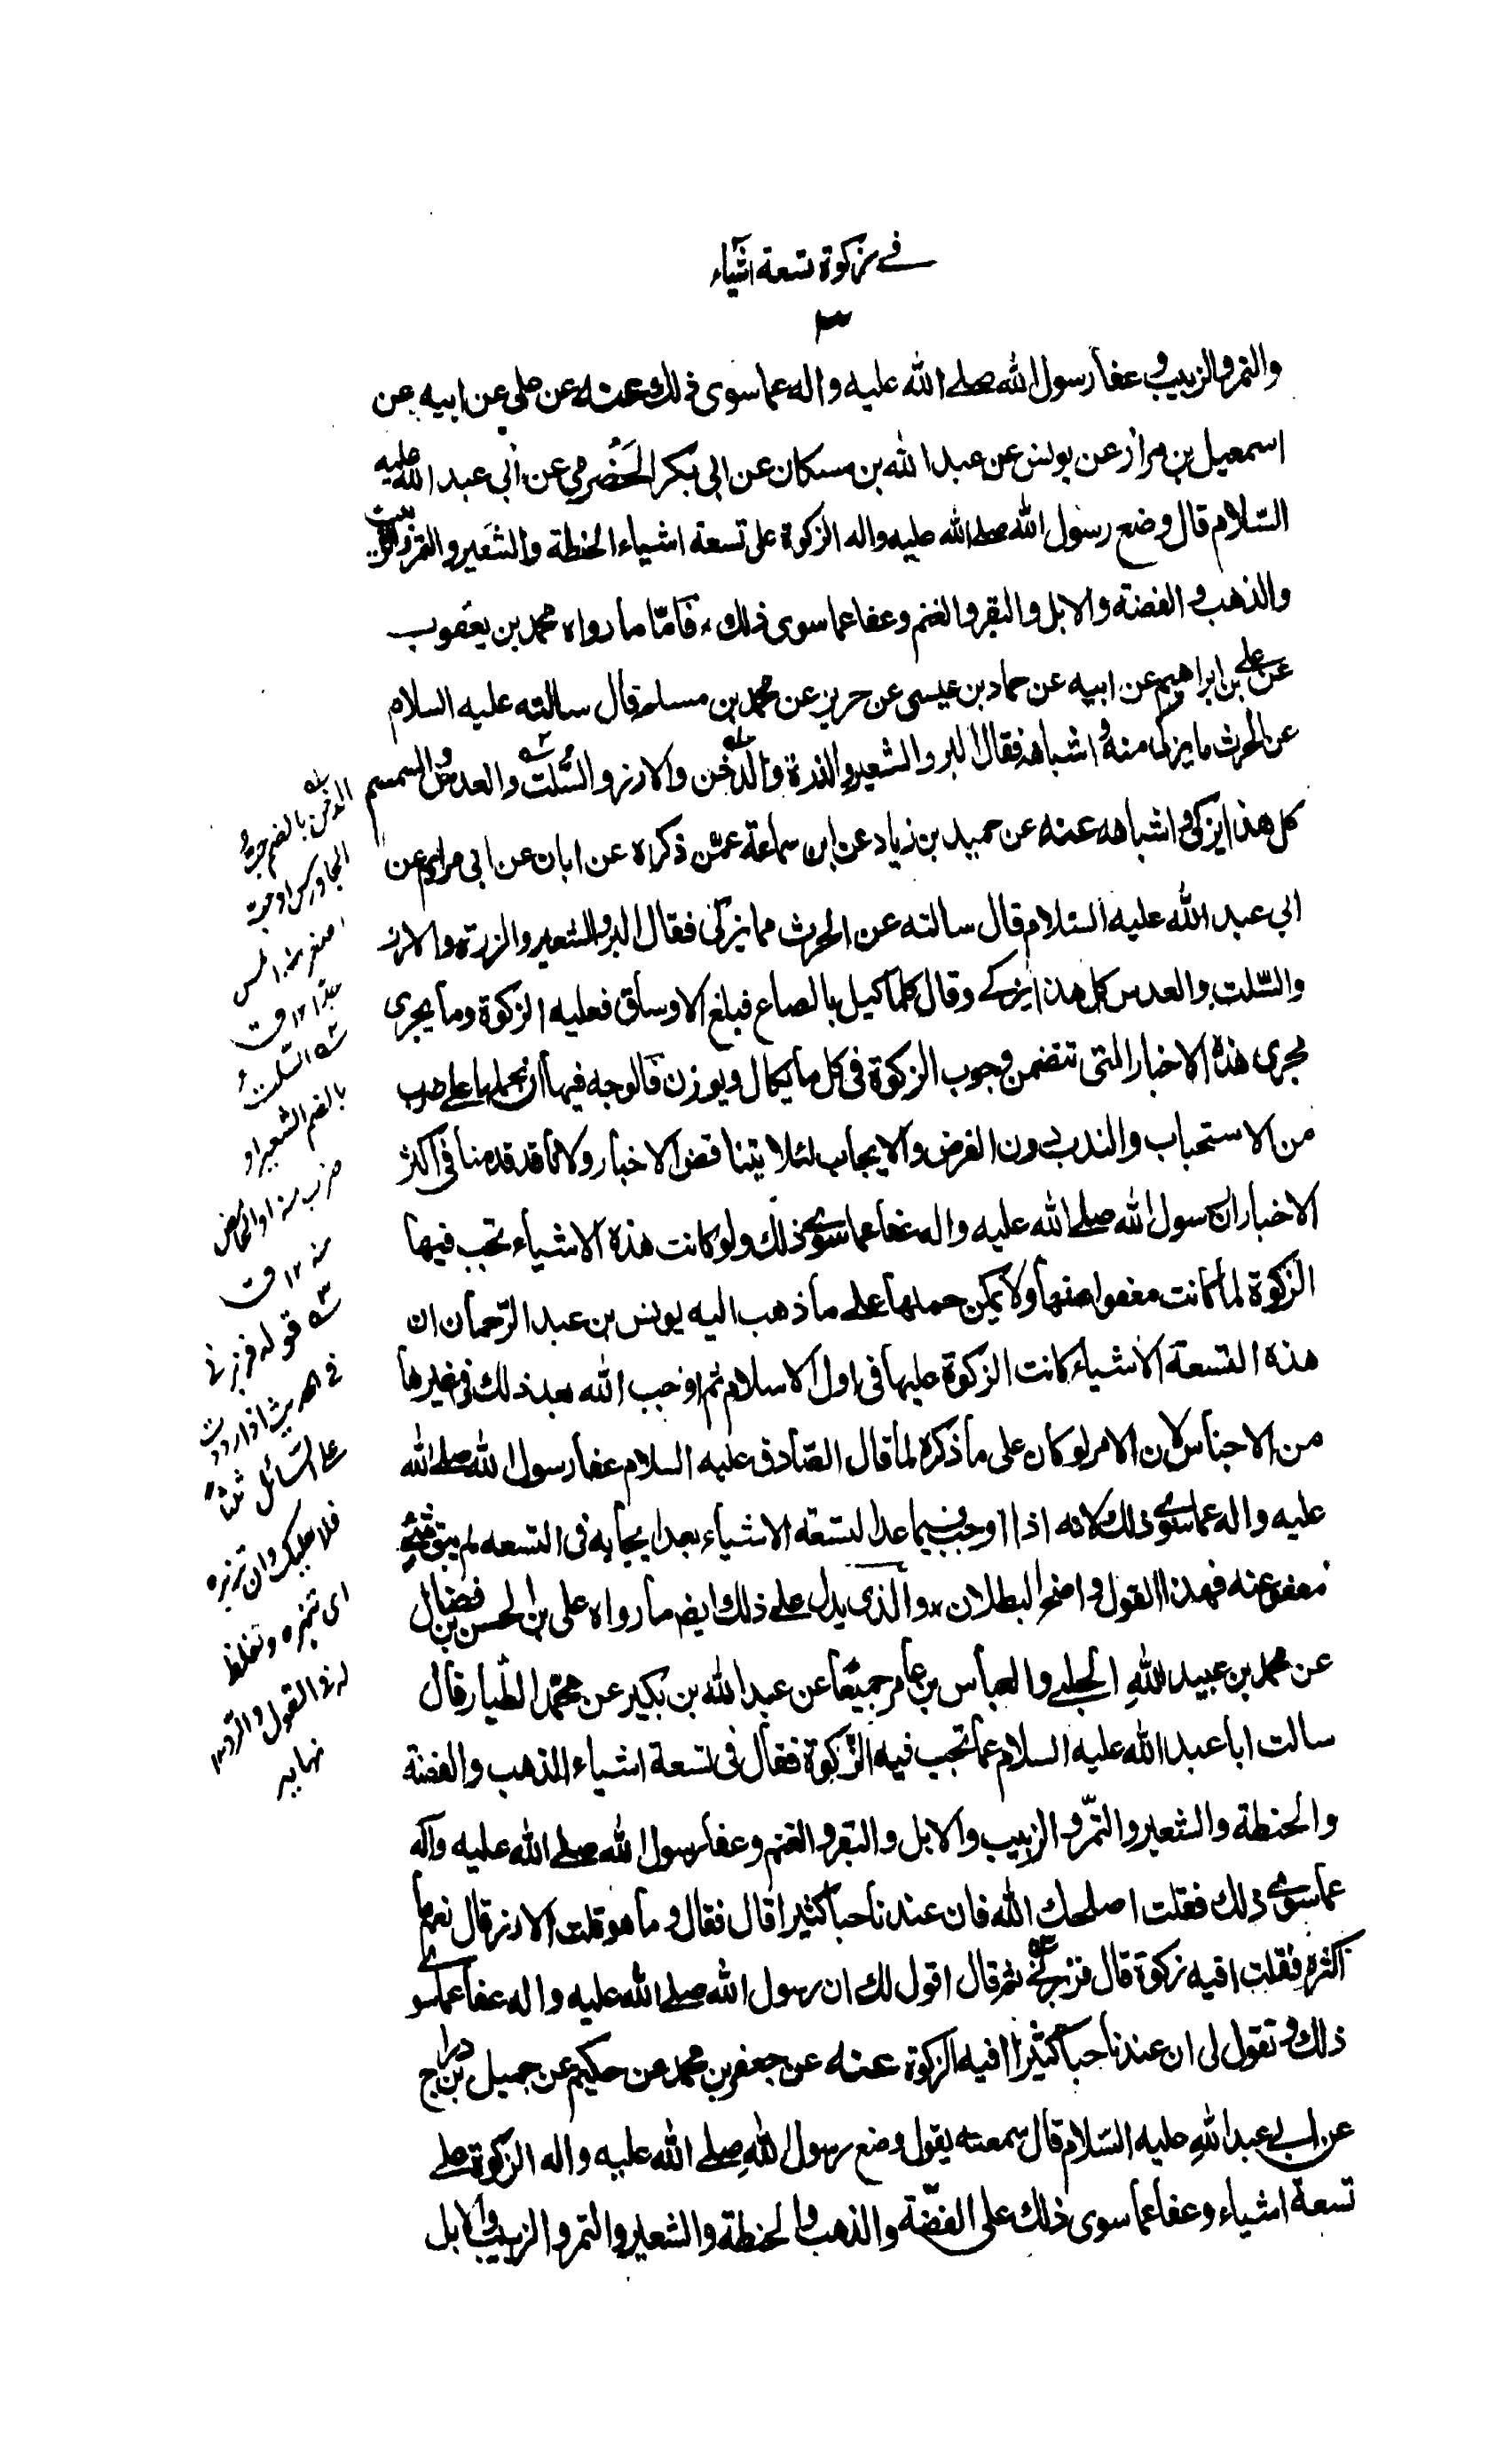 في زكوة تسعة اشياء
٣
والتمر والزبيب وعفا رسول الله صلى الله عليه واله عما سوى ذلك وعنه عن علي عن ابيه عن
اسمعيل بن مرار عن يونس عن عبد الله بن مسكان عن ابى بكر الحَضْرمي عن ابى عبد الله عليه
السّلام قال وضع رسول الله صلى الله عليه واله الزكوة على تسعة اشياء الحنطة والشّعير والتمر والزبيب
والذهب والفضة والابل والبقر والغنم وعفا عما سوى ذلك، فامّا ما رواه محمد بن يعقوب
عن علي بن ابراهيم عن ابيه عن حماد بن عيسى عن حريز عن محمد بن مسلم قال سالته عليه السلام
عن الحرث ما يزكى منه واشباهه فقال البر والشعير والذرة والدّخن والارز والسُّلت والعدس والسمسم
كل هذا يزكى واشباهه عنه عن حميد بن زياد عن ابن سماعة عمّن ذكره عن ابان عن ابى مريم عن
ابي عبد الله عليه السّلام قال سالته عن الحرث مما يزكى فقال البر والشعير والزرة والارز
والسّلت والعدس كل هذا يزكے وقال كلما كيل بالصاع فبلغ الاوساق فعليه الزكوة وما يجرى
مجرى هذه الاخبار التى تتضمن وجوب الزكوة فى كل ما يكال ويوزن فالوجه فيها ان نحملها على ضرب
من الاستحباب والندب دون الفرض والايجاب لئلا يتناقض الاخبار ولانا قد قدمنا فى اكثر
الاخبار ان رسول الله صلے الله عليه واله عفا عما سوى ذلك ولو كانت هذه الاشياء تجب فيها
الزكوة لما كانت معفوا عنها ولا يمكن حملها علے ما ذهب اليه يونس بن عبد الرّحمان ان
هذه التسعة الاشياء كانت الزكوة عليها فى اول الاسلام ثم اوجب الله بعد ذلك فى غيرها
من الاجناس لان الامر لو كان على ما ذكره لما قال الصّادق عليه السلام عفا رسول الله صلے الله
عليه واله عما سوى ذلك لانه اذا اوجب فيما عدا التسعة الاشياء بعد ايجابه فى التسعه لم يبق شئ
معفو عنه فهذا القول واضح البطلان، والذى يدل علے ذلك ايضا ما رواه على بن الحسن بن فضال
عن محمد بن عبيد اللهِ الحلبے والعباس بن عامر جميعًا عن عبد الله بن بكير عن محمّد الطّيار قال
سالت ابا عبد الله عليه السلام عما تجب فيه الزّكوة فقال فى تسعة اشياء الذهب والفضة
والحنطة والشعير والتّمر والزبيب والابل والبقر والغنم وعفا رسول الله صلے الله عليه وآله
عما سوى ذلك فقلت اصلحك الله فان عندنا حبا كثيرا قال فقال وما هو قلت الارز قال نعم ما
اكثره فقلت افيه زكوة قال فزبرنى ثم قال اقول لك ان رسول الله صلے الله عليه واله عفا عما سوى
ذلك وتقول لى ان عندنا حبا كثيرا افيه الزكوة عنه عن جعفر بن محمد عن حكيم عن جميل بن دراج
عن ابے عبد اللهِ عليه السّلام قال سمعته يقول وضع رسول اللهِ صلے الله عليه واله الزكوة علے
تسعة اشياء وعفا عما سوى ذلك على الفضّة والذهب والحنطة والشعير والتمر والزبيب والابل
الدخن بالضم حبة
الجاورس او حبة
اصغر منه املس
جدّا ١٢ ق
السّلت
بالضم الشعير او
ضرب منه او الحامض
منه ١٢ ق
قوله فزبرنى
فى الحديث اذا رددت
على السّائل ثلثاً
فلا عليك ان تزبره
اى تنهره وتغلظ
له فى القول والرد ١٢
نهايه